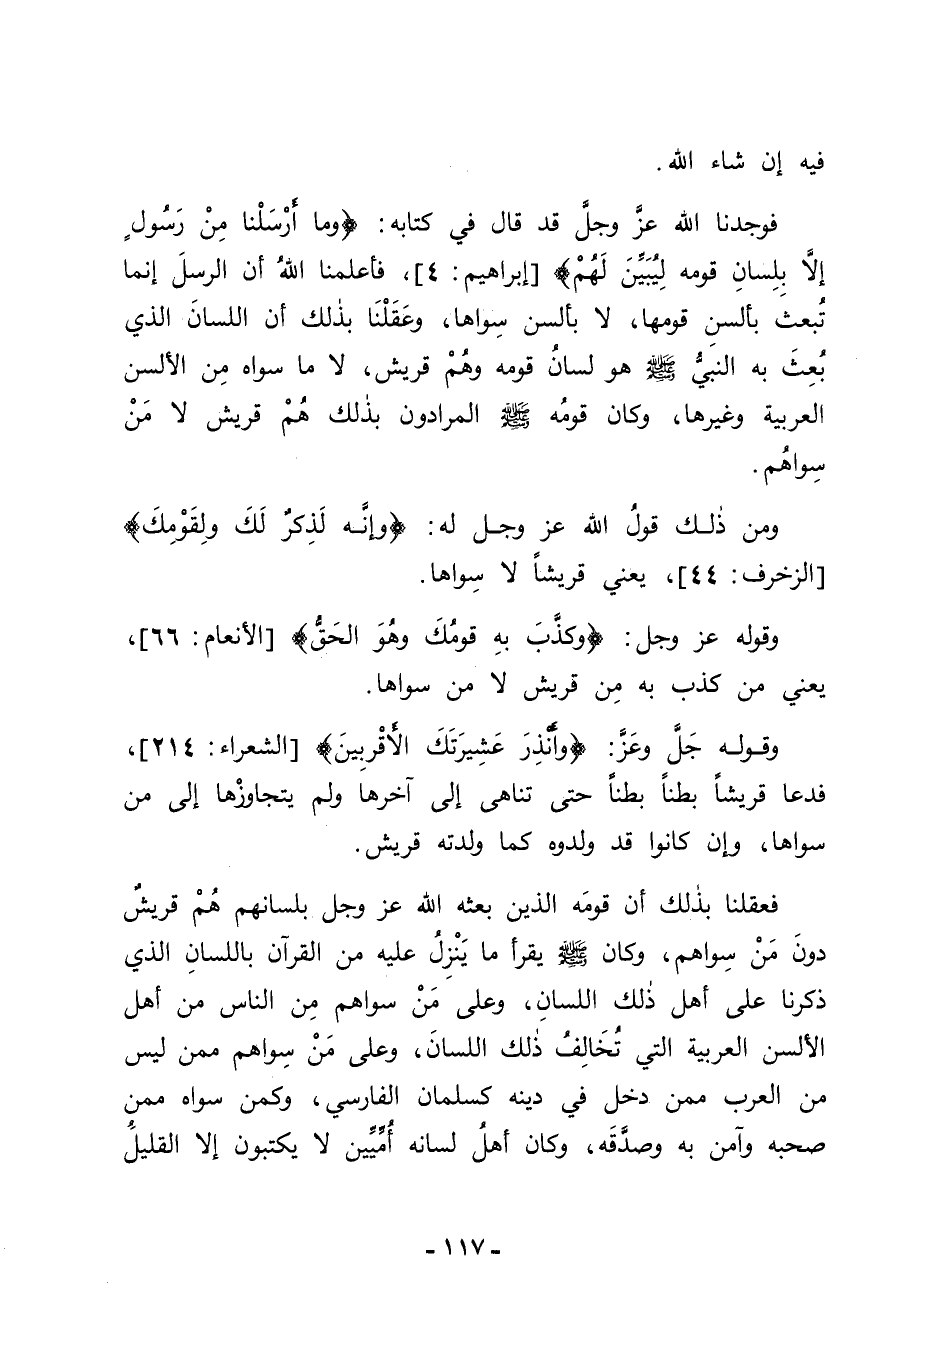 فيه إن شاء الله .
فوجدنا الله عزَّ وجلَّ قد قال في كتابه: ﴿وما أَرْسَلْنا مِنْ رَسُولٍ
إلَّا بِلِسانِ قومه لِيُبَيِّنَ لَهُمْ﴾ [إبراهيم: ٤]، فأعلمنا اللهُ أن الرسلَ إنما
تُبعث بألسنِ قومها، لا بألسنِ سِواها، وعَقَلْنَا بذٰلك أن اللسانَ الذي
بُعِثَ به النبيُّ ﷺ هو لسانُ قومه وهُمْ قريش، لا ما سواه مِن الألسن
العربية وغيرها، وكان قومُه ﷺ المرادون بذٰلك هُمْ قريش لا مَنْ
سِواهُم .
ومن ذٰلك قولُ الله عز وجل له: ﴿وإنَّه لَذِكرٌ لَكَ ولِقَوْمِكَ﴾
[الزخرف: ٤٤]، يعني قريشاً لا سِواها.
وقوله عز وجل: ﴿وكذَّبَ بِهِ قومُكَ وهُوَ الحَقُّ﴾ [الأنعام: ٦٦]،
يعني من كذب به مِن قريش لا من سواها.
وقوله جَلَّ وعَزَّ: ﴿وأَنْذِرَ عَشِيرَتَكَ الأَقْرِبِينَ﴾ [الشعراء: ٢١٤]،
فدعا قريشاً بطناً بطناً حتى تناهى إلى آخرها ولم يتجاوزْها إلى من
سواها، وإن كانوا قد ولدوه كما ولدته قريش.
فعقلنا بذٰلك أن قومَه الذين بعثه الله عز وجل بلسانهم هُمْ قريشٌ
دونَ مَنْ سِواهم، وكان ﷺ يقرأ ما يَنْزِلُ عليه من القرآن باللسانِ الذي
ذكرنا على أهل ذٰلك اللسانِ، وعلى مَنْ سواهم مِن الناس من أهل
الألسن العربية التي تُخَالِفُ ذٰلك اللسانَ، وعلى مَنْ سِواهم ممن ليس
من العرب ممن دخل في دينه كسلمان الفارسي، وكمن سواه ممن
صحبه وآمن به وصدَّقَه، وكان أهلُ لسانه أُمِّيِّين لا يكتبون إلا القليلُ
- ١١٧ -